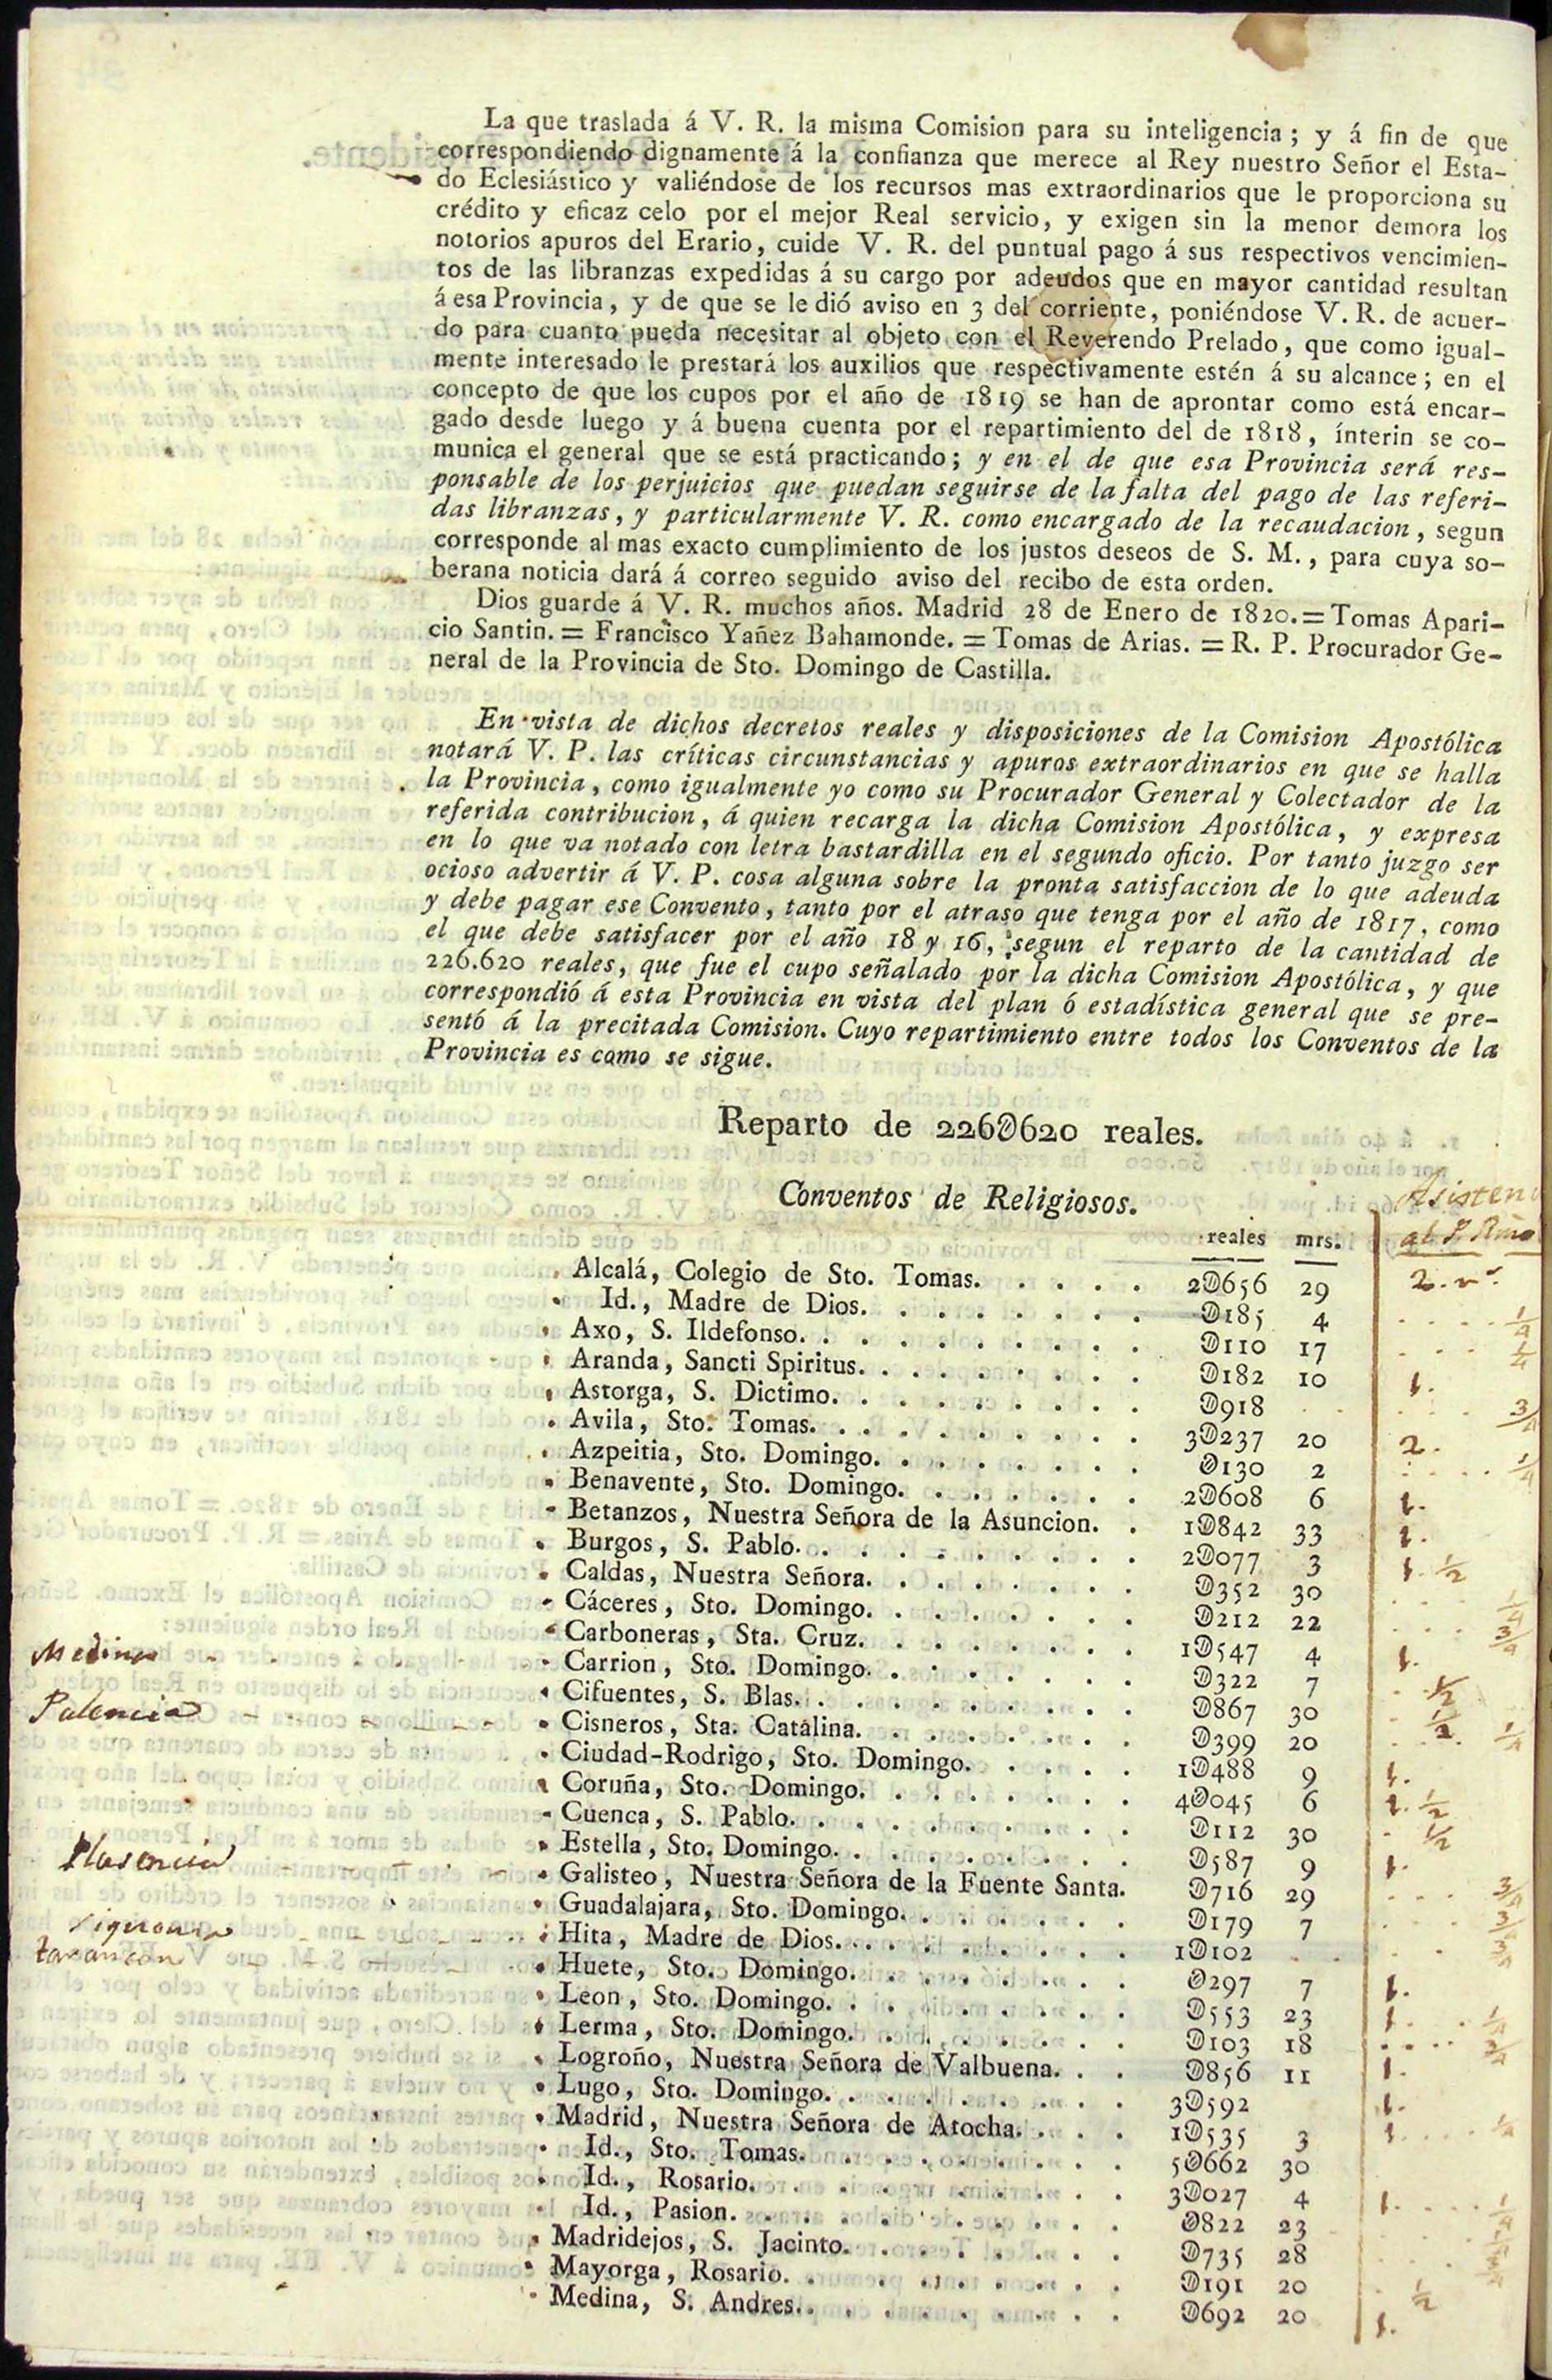 La que traslada á V. R. la misma Comision para su inteligencia; y á fin de que
correspondiendo dignamente á la confianza que merece al Rey nuestro Señor el Esta-
do Eclesiástico y valiéndose de los recursos mas extraordinarios que le proporciona su
crédito y eficaz celo por el mejor Real servicio, y exigen sin la menor demora los
notorios apuros del Erario, cuide V. R. del puntual pago á sus respectivos vencimien-
tos de las libranzas expedidas á su cargo por adeudos que en mayor cantidad resultan
á esa Provincia, y de que se le dió aviso en 3 del corriente, poniéndose V. R. de acuer-
do para cuanto pueda necesitar al objeto con el Reverendo Prelado, que como igual-
mente interesado le prestará los auxilios que respectivamente estén á su alcance; en el
concepto de que los cupos por el año de 1819 se han de aprontar como está encar-
gado desde luego y á buena cuenta por el repartimiento del de 1818, ínterin se co-
munica el general que se está practicando; y en el de que esa Provincia será res-
ponsable de los perjuicios que puedan seguirse de la falta del pago de las referi-
das libranzas, y particularmente V. R. como encargado de la recaudacion, segun
corresponde al mas exacto cumplimiento de los justos deseos de S. M., para cuya so-
berana noticia dará á correo seguido aviso del recibo de esta orden.
Dios guarde á V. R. muchos años. Madrid 28 de Enero de 1820.=Tomas Apari-
cio Santin.=Francisco Yañez Bahamonde.=Tomas de Arias.=R. P. Procurador Ge-
neral de la Provincia de Sto. Domingo de Castilla.
En vista de dichos decretos reales y disposiciones de la Comision Apostólica
notará V. P. las críticas circunstancias y apuros extraordinarios en que se halla
la Provincia, como igualmente yo como su Procurador General y Colectador de la
referida contribucion, á quien recarga la dicha Comision Apostólica, y expresa
en lo que va notado con letra bastardilla en el segundo oficio. Por tanto juzgo ser
ocioso advertir á V. P. cosa alguna sobre la pronta satisfaccion de lo que adeuda
y debe pagar ese Convento, tanto por el atraso que tenga por el año de 1817, como
el que debe satisfacer por el año 18 y 16, segun el reparto de la cantidad de
226.620 reales, que fue el cupo señalado por la dicha Comision Apostólica, y que
correspondió á esta Provincia en vista del plan ó estadística general que se pre-
sentó á la precitada Comision. Cuyo repartimiento entre todos los Conventos de la
Provincia es como se sigue.
Reparto de 226D620 reales.
Conventos de Religiosos.
Asisten
reales mrs. al P. Rmo
Alcalá, Colegio de Sto. Tomas. 2D656 29 2. rs.
Id., Madre de Dios. D185 4 1/4
Axo, S. Ildefonso. D110 17 1/4
Aranda, Sancti Spiritus. D182 10 1.
Astorga, S. Dictimo. D918 3/4
Avila, Sto. Tomas. 3D237 20 2.
Azpeitia, Sto. Domingo. D130 2 1/4
Benavente, Sto. Domingo. 2D608 6 1.
Betanzos, Nuestra Señora de la Asuncion. 1D842 33 1.
Burgos, S. Pablo. 2D077 3 1. 1/2
Caldas, Nuestra Señora. D352 30 1/4
Cáceres, Sto. Domingo. D212 22 3/4
Carboneras, Sta. Cruz. 1D547 4 1.
Medina Carrion, Sto. Domingo. D322 7 1/2
Cifuentes, S. Blas. D867 30 1/2
Palencia Cisneros, Sta. Catalina. D399 20 1/4
Ciudad-Rodrigo, Sto. Domingo. 1D488 9 1.
Coruña, Sto. Domingo. 4D045 6 1. 1/2
Cuenca, S. Pablo. D112 30 1/2
Estella, Sto. Domingo. D587 9 1.
Plasencia Galisteo, Nuestra Señora de la Fuente Santa. D716 29 3/4
Guadalajara, Sto. Domingo. D179 7 3/4
Hita, Madre de Dios. 1D102 3/4
tarancon Huete, Sto. Domingo. D297 7 1.
Leon, Sto. Domingo. D553 23 1. 1/4
Lerma, Sto. Domingo. D103 18 3/4
Logroño, Nuestra Señora de Valbuena. D856 11 1.
Lugo, Sto. Domingo. 3D592 1.
Madrid, Nuestra Señora de Atocha. 1D535 3 1. 1/4
Id., Sto. Tomas. 5D662 30
Id., Rosario. 3D027 4 1. 1/4
Id., Pasion. D822 23
Madridejos, S. Jacinto. D735 28
Mayorga, Rosario. D191 20 1/2
Medina, S. Andres. D692 20 1.